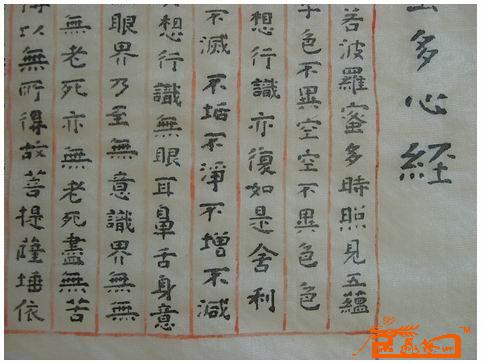 多心經
若波羅蜜多時照見五蘊
色不異空空不異色色
想行識亦復如是舍利
不滅不垢不淨不增不減
想行識無眼耳鼻舌身意
眼界乃至無意識界無無
無老死亦無老死盡無苦
以無所得故菩提薩埵依